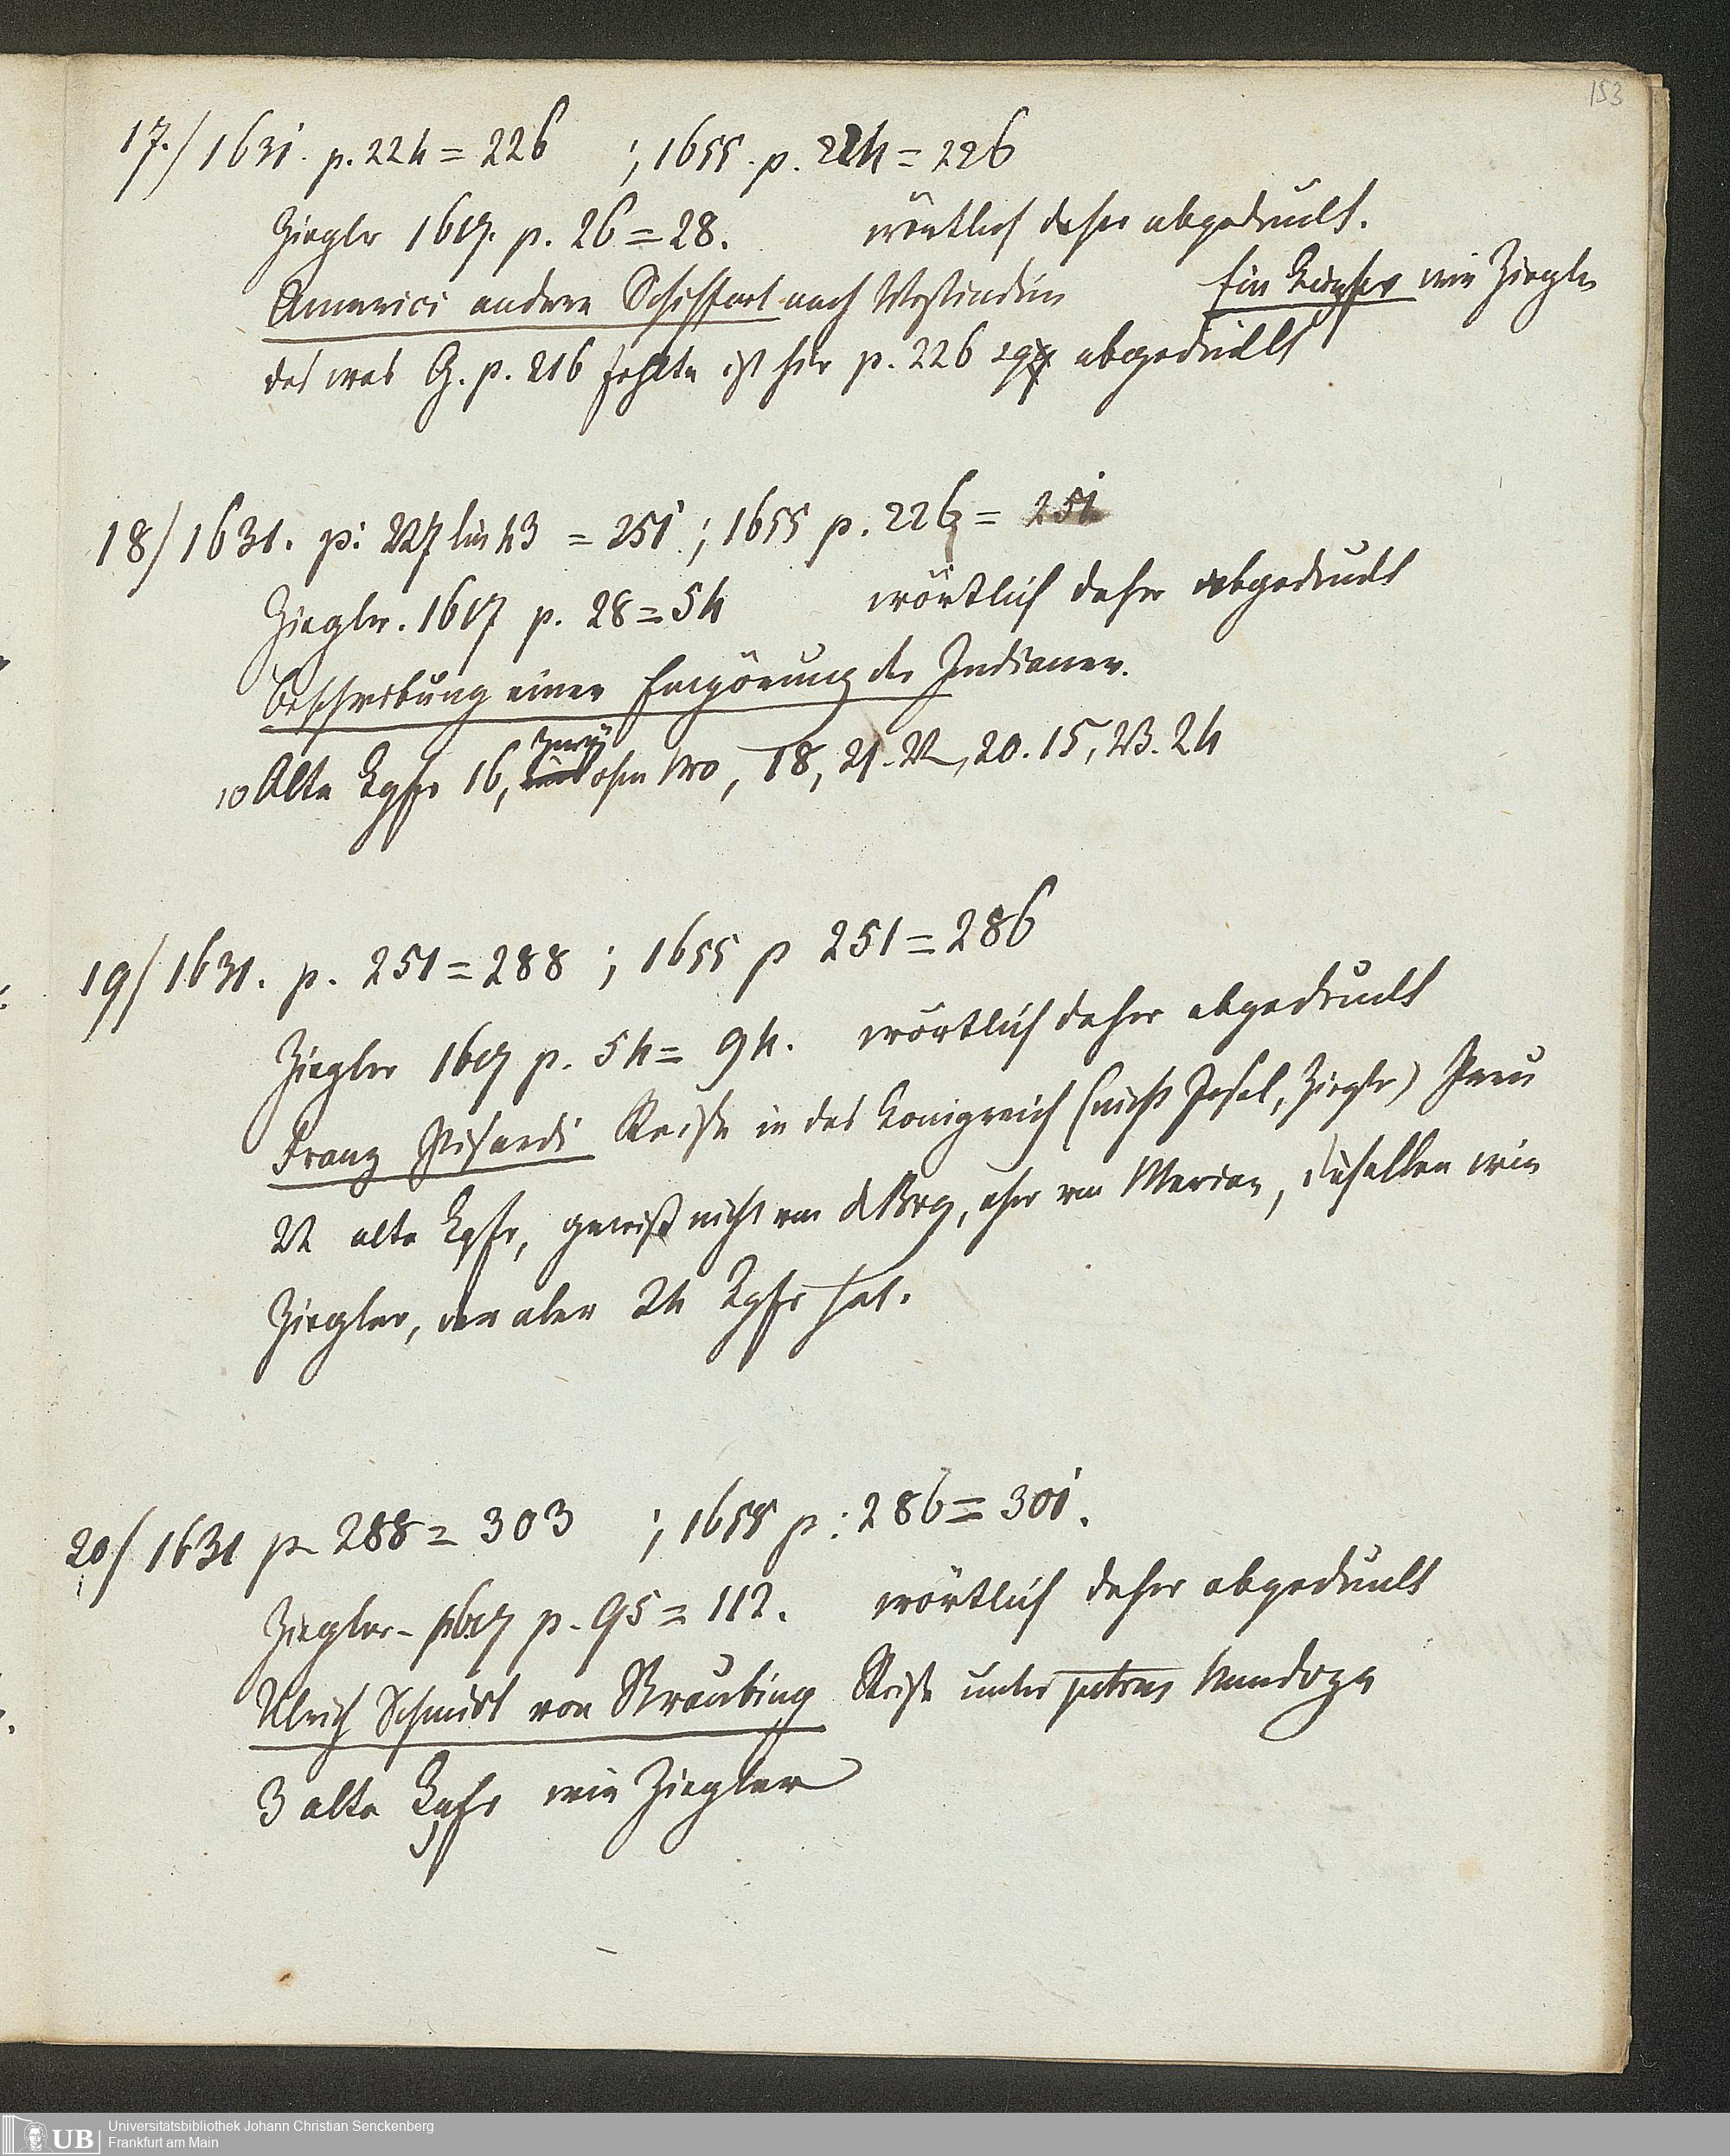 153
17./ 1631. p. 224 = 226 ; 1655. p. 224 = 226
Ziegler 1617. p. 26 = 28. wörtlich daher abgedruckt.
Americi andere Schiffart nach Westindien Ein Kupfer wie Ziegler
das was G. p. 216 fehlte ist hier p. 226 abgedruckt
18/ 1631. p: 227 lin 43 = 251 ; 1655 p. 226 = 251
Ziegler. 1617 p. 28 = 54 wörtlich daher abgedruckt
Beschreibung einer Empörung der Indianer.
zwey
10 Alte Kpfr 16, ohne No, 18, 21. 22, 20. 15, 23. 24
19/ 1631. p. 251 = 288 ; 1655 p 251 = 286
Ziegler 1617 p. 54 = 94. wörtlich daher abgedruckt
Franz Pisardi Reise in das Königreich (nicht Insel, Ziegler) Peru
22 alte Kpfr, gewiß nicht von deBry, eher von Merian, dieselben wie
Ziegler, der aber 24 Kpfr hat.
20/ 1631 p. 288 = 303 ; 1655 p: 286 = 301.
Ziegler 1617 p. 95 = 112. wörtlich daher abgedruckt
Ulrich Schmidt von Straubing Reise unter petrus Mendoza
3 alte Kpfr wie Ziegler
UB
Universitätsbibliothek Johann Christian Senckenberg
Frankfurt am Main